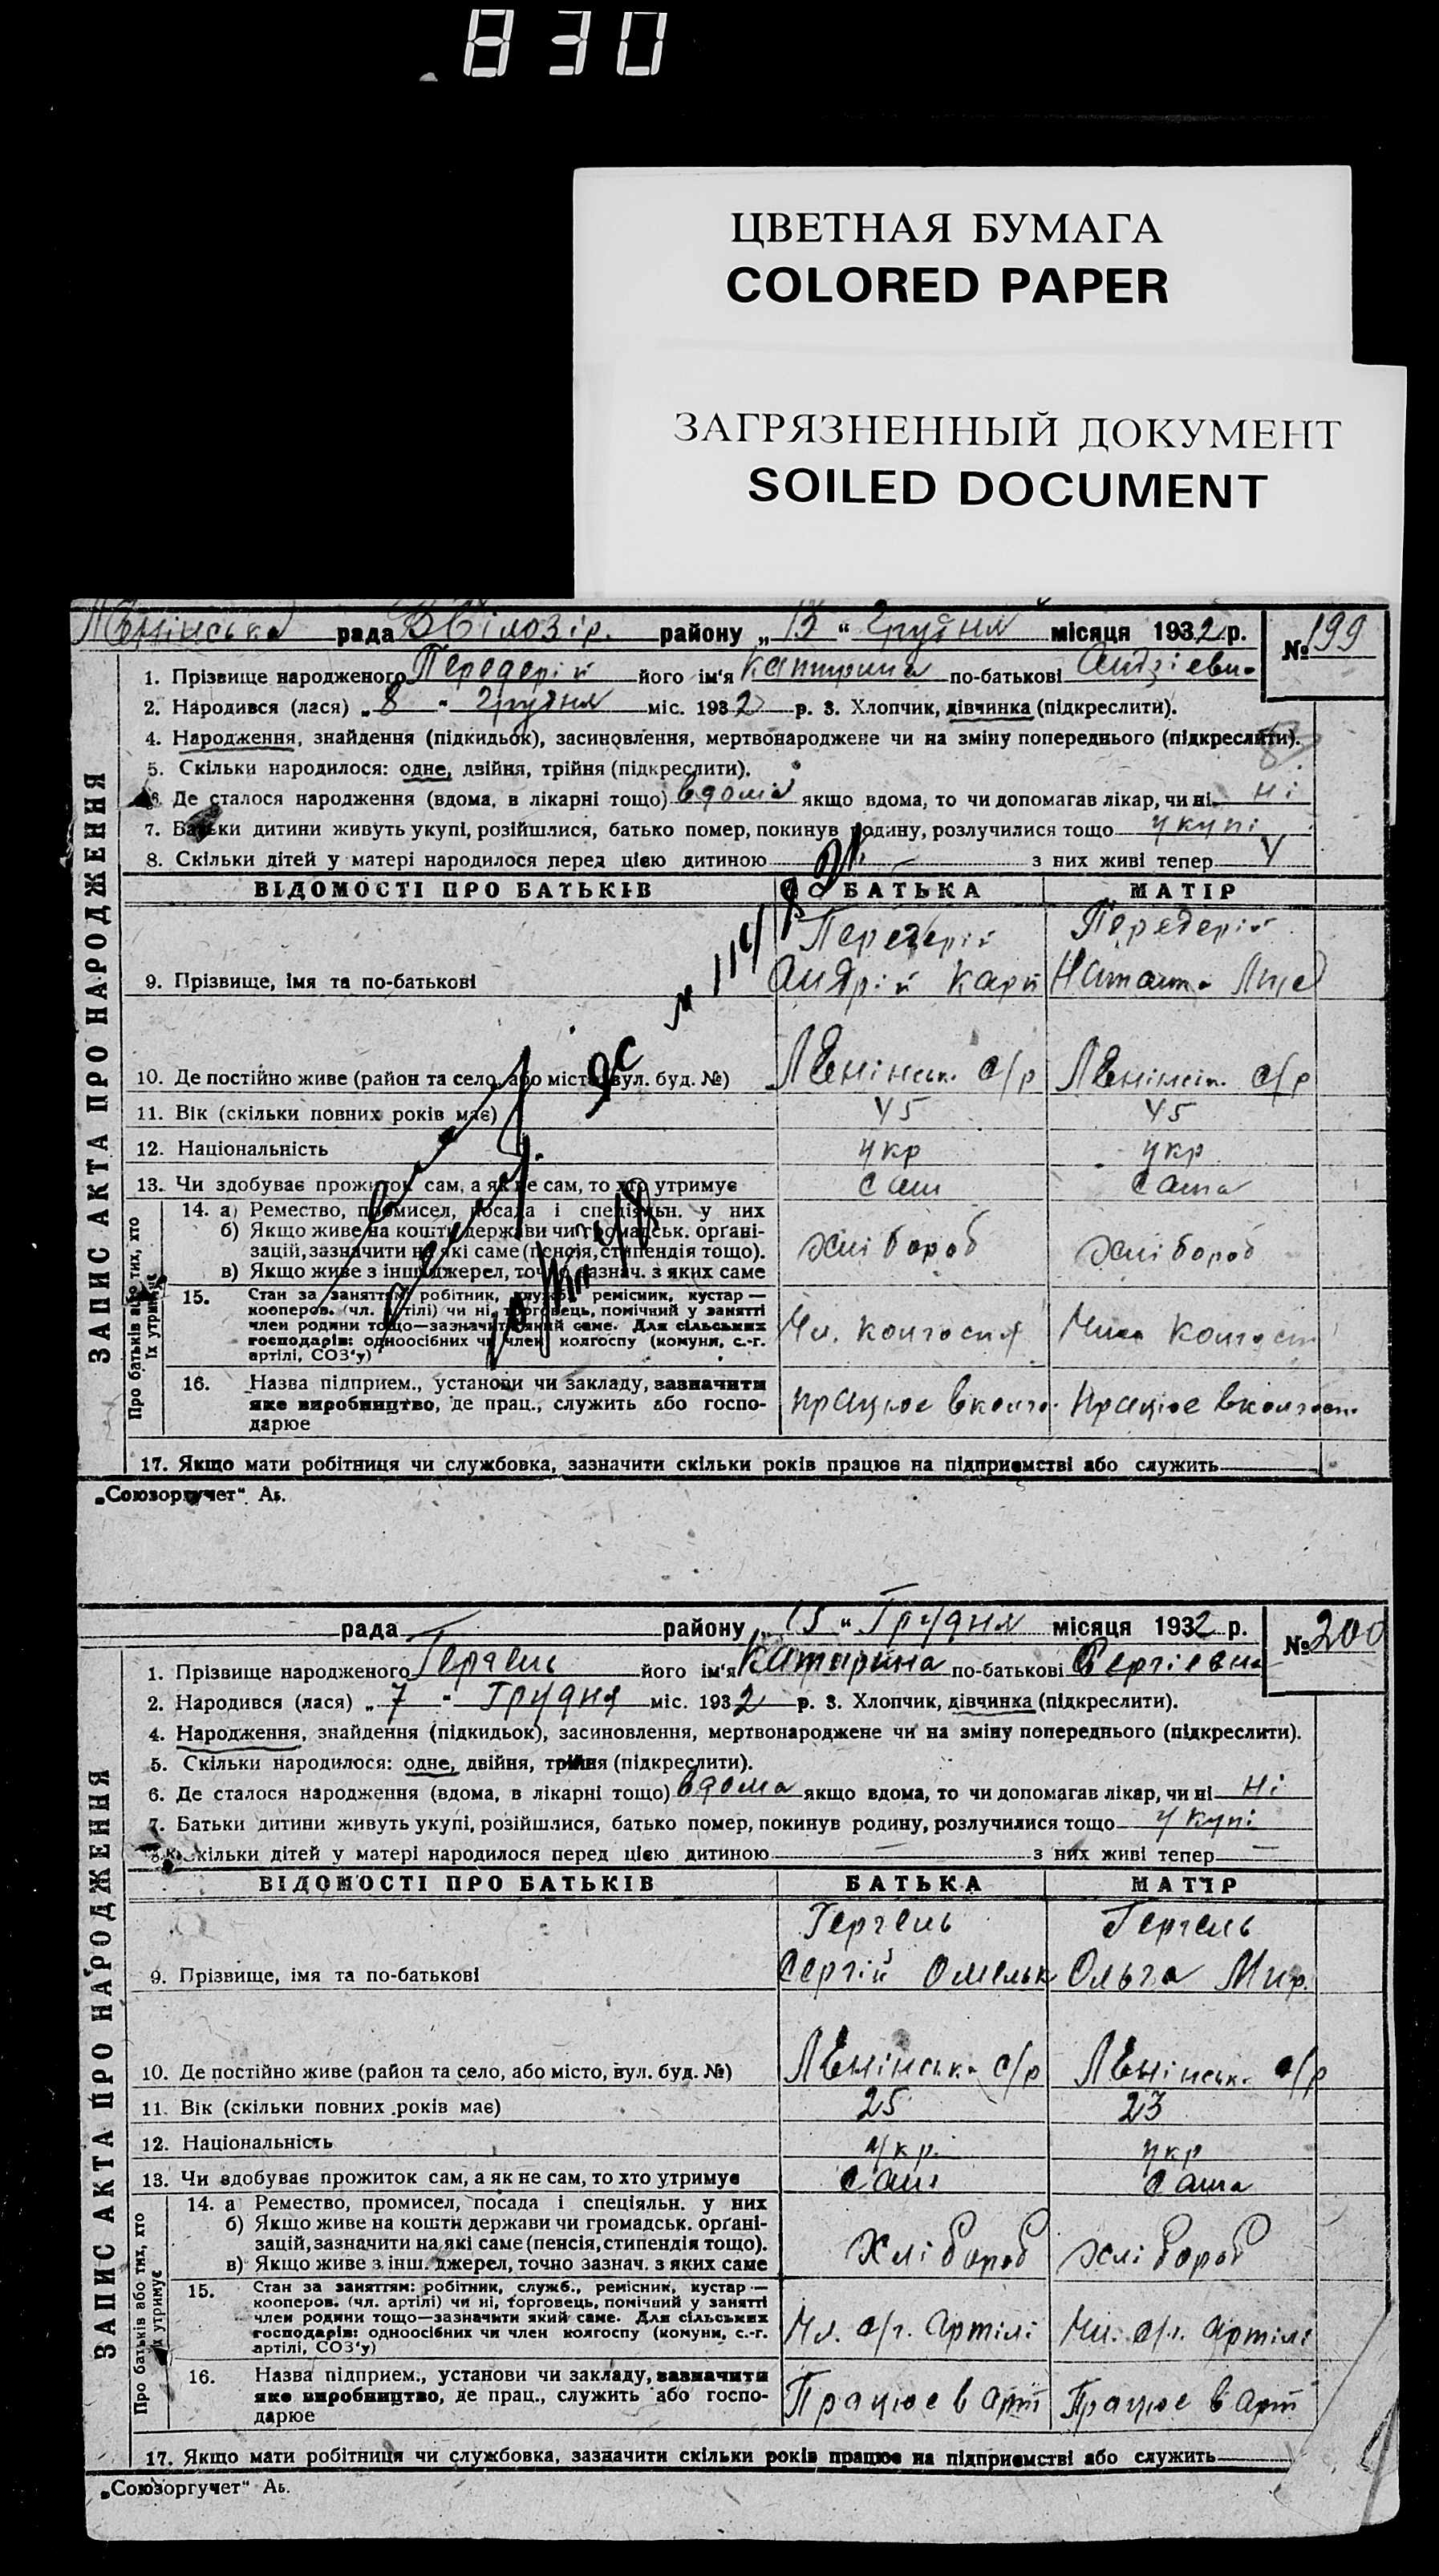 830
ЦВЕТНАЯ БУМАГА
COLORED PAPER
ЗАГРЯЗНЕННЫЙ ДОКУМЕНТ
SOILED DOCUMENT
ЗАПИС АКТА ПРО НАРОДЖЕННЯ
Ленінська рада В Білозір. району „ 13 “ Грудня місяця 1932 р. № 199
1. Прізвище народженого Передерій його ім'я Катирина по-батькові
2. Народився (лася) „ 8 " Грудня міс. 1932 р. 3. Хлопчик, дівчинка (підкреслити).
4. Народження, знайдення (підкидьок), засиновлення, мертвонароджене чи на зміну попереднього (підкреслити).
5. Скільки народилося: одне, двійня, трійня (підкреслити).
6. Де сталося народження (вдома, в лікарні тощо) вдома якщо вдома, то чи допомагав лікар, чи ні ні
7. Батьки дитини живуть укупі, розійшлися, батько помер, покинув родину, розлучилися тощо укупі
8. Скільки дітей у матері народилося перед цією дитиною з них живі тепер
ВІДОМОСТІ ПРО БАТЬКІВ БАТЬКА МАТІР
Передерій Передерій
9. Прізвище, імя та по-батькові Андрій Карп
10. Де постійно живе (район та село, або місто, вул. буд. №) Ленінськ. с/р Ленінськ. с/р
11. Вік (скільки повних років має) 45 45
12. Національність укр укр
13. Чи здобуває прожиток сам, а як не сам, то хто утримує сам сама
Про батьків або тих, хто їх утримує
14. а) Ремество, промисел, посада і спеціяльн. у них
б) Якщо живе на кошти держави чи громадськ. орґані-
зацій, зазначити на які саме (пенсія, стипендія тощо). хлібороб хлібороб
в) Якщо живе з інш. джерел, точно зазнач. з яких саме
15. Стан за заняттям: робітник, служб., ремісник, кустар—
кооперов. (чл. артілі) чи ні, торговець, помічний у занятті
член родини тощо—зазначити який саме. Для сільських
господарів: одноосібних чи член колгоспу (комуни, с.-г.
артілі, СОЗ'у) Чл. колгоспу Член колгосп
16. Назва підприєм., установи чи закладу, зазначити
яке виробництво, де прац., служить або госпо-
дарює працює в колго. працює в колгосп.
17. Якщо мати робітниця чи службовка, зазначити скільки років працює на підприємстві або служить
„Союзоргучет“ Аь.
ЗАПИС АКТА ПРО НАРОДЖЕННЯ
рада району „ 15 “ Грудня місяця 1932 р. № 200
1. Прізвище народженого Гергель його ім'я Катирина по-батькові Сергіевна
2. Народився (лася) „ 7 " Грудня міс. 1932 р. 3. Хлопчик, дівчинка (підкреслити).
4. Народження, знайдення (підкидьок), засиновлення, мертвонароджене чи на зміну попереднього (підкреслити).
5. Скільки народилося: одне, двійня, трійня (підкреслити).
6. Де сталося народження (вдома, в лікарні тощо) вдома якщо вдома, то чи допомагав лікар, чи ні ні
7. Батьки дитини живуть укупі, розійшлися, батько помер, покинув родину, розлучилися тощо укупі
8. Скільки дітей у матері народилося перед цією дитиною — з них живі тепер —
ВІДОМОСТІ ПРО БАТЬКІВ БАТЬКА МАТІР
Гергель Гергель
9. Прізвище, імя та по-батькові Сергій Омельк Ольга Мир.
10. Де постійно живе (район та село, або місто, вул. буд. №) Ленінськ. с/р Ленінськ. с/р
11. Вік (скільки повних років має) 25 23
12. Національність укр. укр
13. Чи здобуває прожиток сам, а як не сам, то хто утримує сам сама
Про батьків або тих, хто їх утримує
14. а Ремество, промисел, посада і спеціяльн. у них
б) Якщо живе на кошти держави чи громадськ. орґані-
зацій, зазначити на які саме (пенсія, стипендія тощо). Хлібороб хлібороб
в) Якщо живе з інш. джерел, точно зазнач. з яких саме
15. Стан за заняттям: робітник, служб., ремісник, кустар—
кооперов. (чл. артілі) чи ні, торговець, помічний у занятті
член родини тощо—зазначити який саме. Для сільських
господарів: одноосібних чи член колгоспу (комуни, с.-г.
артілі, СОЗ'у) Чл. с/г. артілі Чл. с/г. артілі
16. Назва підприєм., установи чи закладу, зазначити
яке виробництво, де прац., служить або госпо-
дарює Працює в Арт Працює в Арт
17. Якщо мати робітниця чи службовка, зазначити скільки років працює на підприємстві або служить
„Союзоргучет“ Аь.